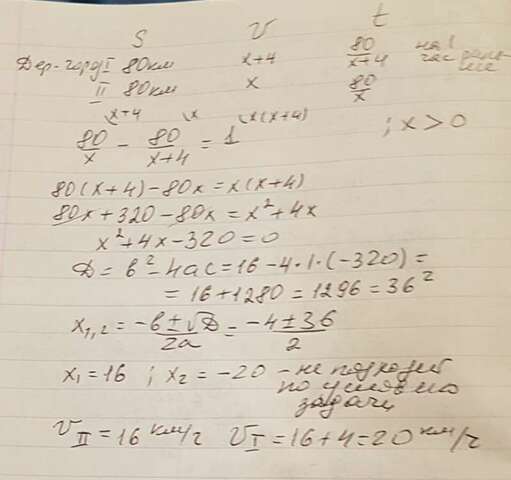 S v t
Дер-город I 80км x+4 80/(x+4) на 1 час раньше
II 80км x 80/x
\x+4 \x \x(x+4)
80/x - 80/(x+4) = 1 ; x > 0
80(x+4)-80x=x(x+4)
80x+320-80x=x²+4x
x²+4x-320=0
D=b²-4ac=16-4·1·(-320)=
=16+1280=1296=36²
x₁,₂=(-b±√D)/2a=(-4±36)/2
x₁=16 ; x₂=-20 - не подходит
по условию
задачи
v_II=16 км/ч v_I=16+4=20 км/ч